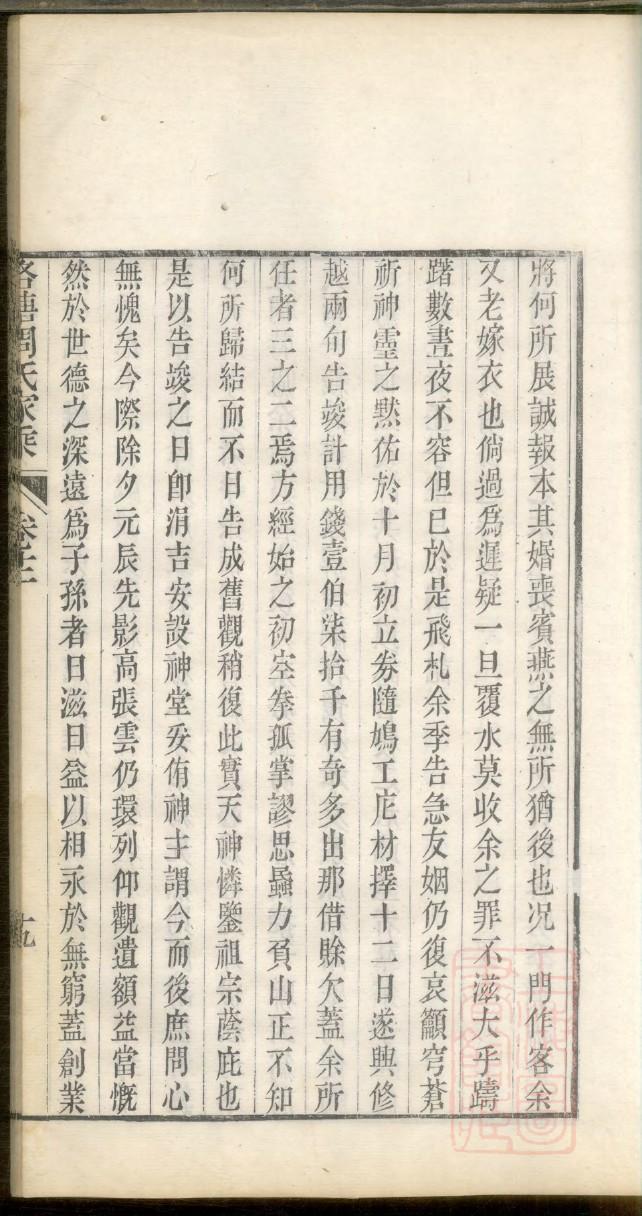 將何所展誠報本其婚喪賓燕之無所猶後也况一門作客余
又老嫁衣也倘過爲遲疑一旦覆水莫收余之罪不滋大乎躊
躇數晝夜不容但已於是飛札余季告急友姻仍復哀籲穹蒼
祈神靈之黙佑於十月初立劵隨鳩工庀材擇十二日遂興修
越兩旬告竣計用錢壹伯柒拾千有奇多出那借賖欠蓋余所
任者三之二焉方經始之初空拳孤掌謬思蟁力負山正不知
何所歸結而不日告成舊觀稍復此實天神憐鑒祖宗蔭庇也
是以告竣之日卽涓吉安設神堂妥侑神主謂今而後庶問心
無愧矣今際除夕元辰先影高張雲仍環列仰觀遺額益當慨
然於世德之深遠爲子孫者日滋日益以相永於無窮蓋創業
塘周氏家乘 卷 十九